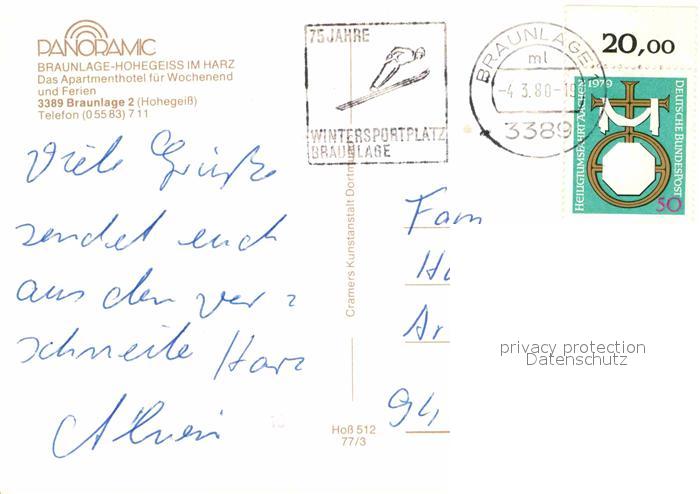 PANORAMIC
BRAUNLAGE-HOHEGEISS IM HARZ
Das Apartmenthotel für Wochenend
und Ferien
3389 Braunlage 2 (Hohegeiß)
Telefon (05583) 711
75 JAHRE
WINTERSPORTPLATZ
BRAUNLAGE
BRAUNLAGE 1
ml
-4.3.80-19
3389
20,00
HEILIGTUMSFAHRT AACHEN 1979
DEUTSCHE BUNDESPOST
50
Viele Grüße
sendet euch
aus den ver=
schneite Harz
Cramers Kunstanstalt Dortm
Fam
Hu
Ar
94,
privacy protection
Datenschutz
Hoß 512
77/3